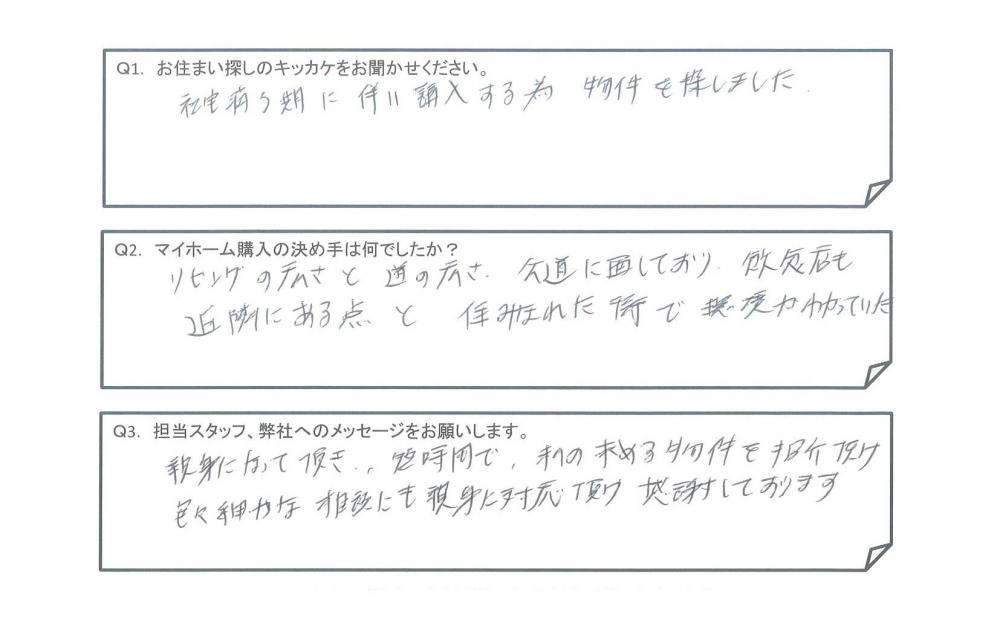 Q1. お住まい探しのキッカケをお聞かせください。
社宅満了期に伴い購入する為 物件を探しました.
Q2. マイホーム購入の決め手は何でしたか？
リビングの広さと 道の広さ. 公道に面しており. 飲食店も
近隣にある点と 住みなれた街で 環境がわかっていた
Q3. 担当スタッフ、弊社へのメッセージをお願いします。
親身になって頂き., 短時間で, 私の求める物件を紹介頂け
色々細やかな相談にも親身に対応頂け 感謝しております